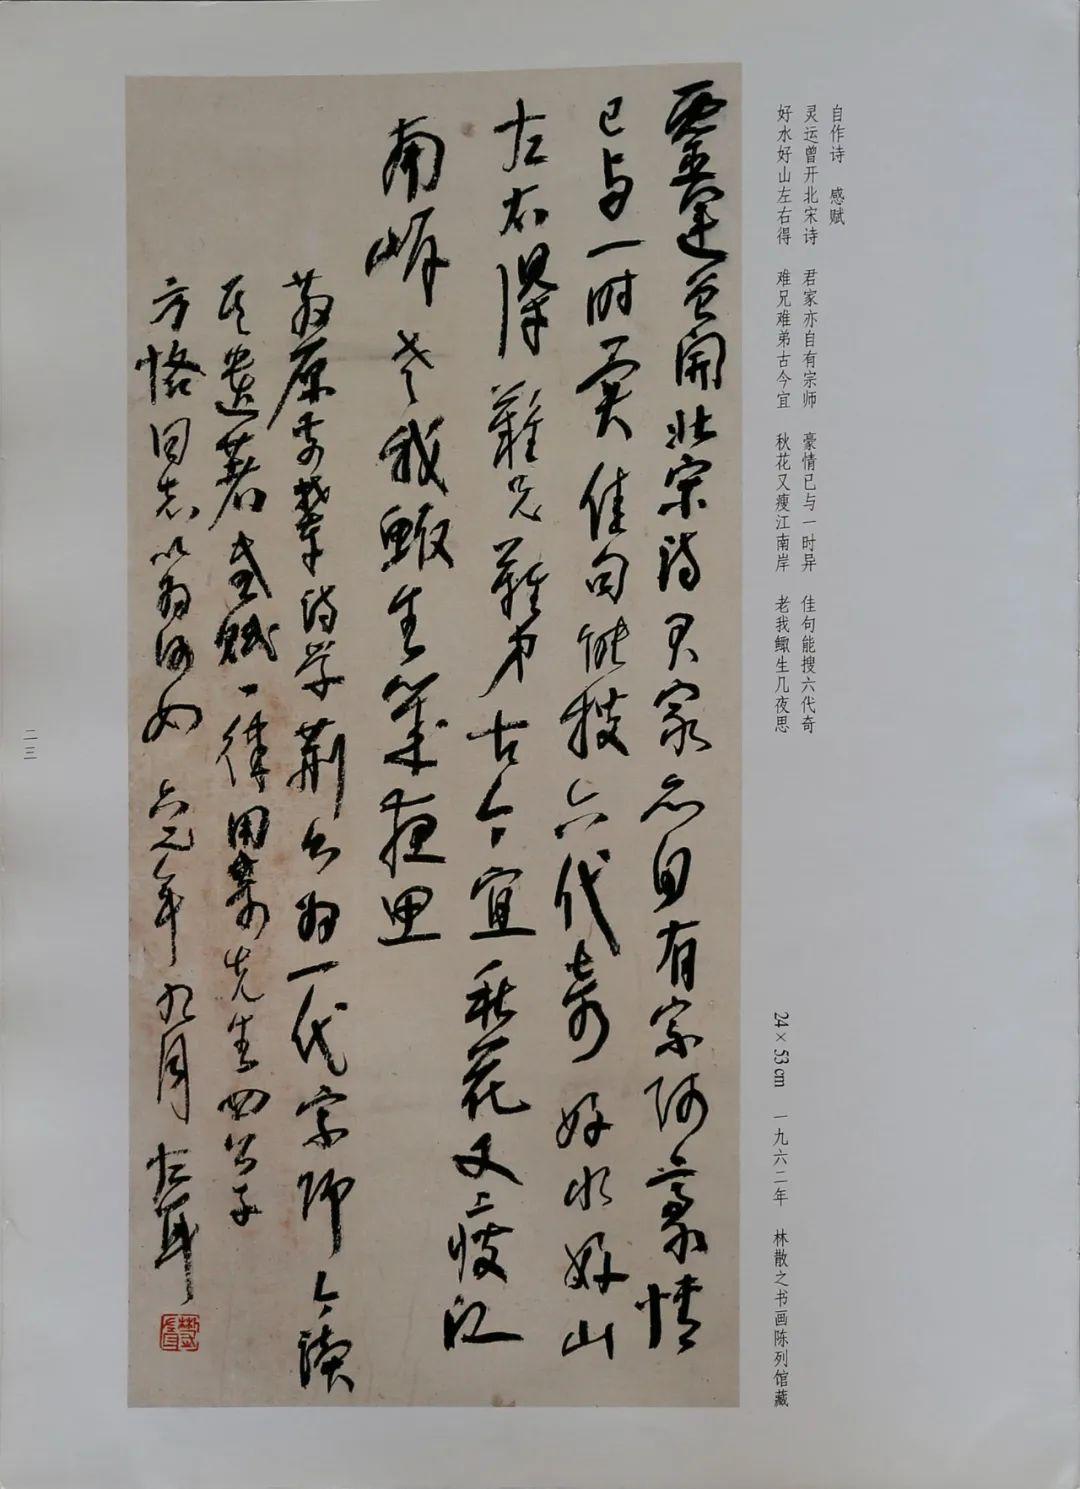 自作诗 感赋
灵运曾开北宋诗 君家亦自有宗师 豪情已与一时异 佳句能搜六代奇
好水好山左右得 难兄难弟古今宜 秋花又瘦江南岸 老我鲰生几夜思
24×53 cm 一九六二年 林散之书画陈列馆藏
灵运曾開北宗诗君家亦自有宗师豪情
已与一时異佳句能搜六代奇好水好山
左右得難兄難弟古今宜秋花又瘦江
南岸老我鲰生幾夜思
散原李群诗学荆公为一代宗师今读
其遗著感赋一律用寄先生四公子
方恪同志以为何如 六二年九月 左耳
二三